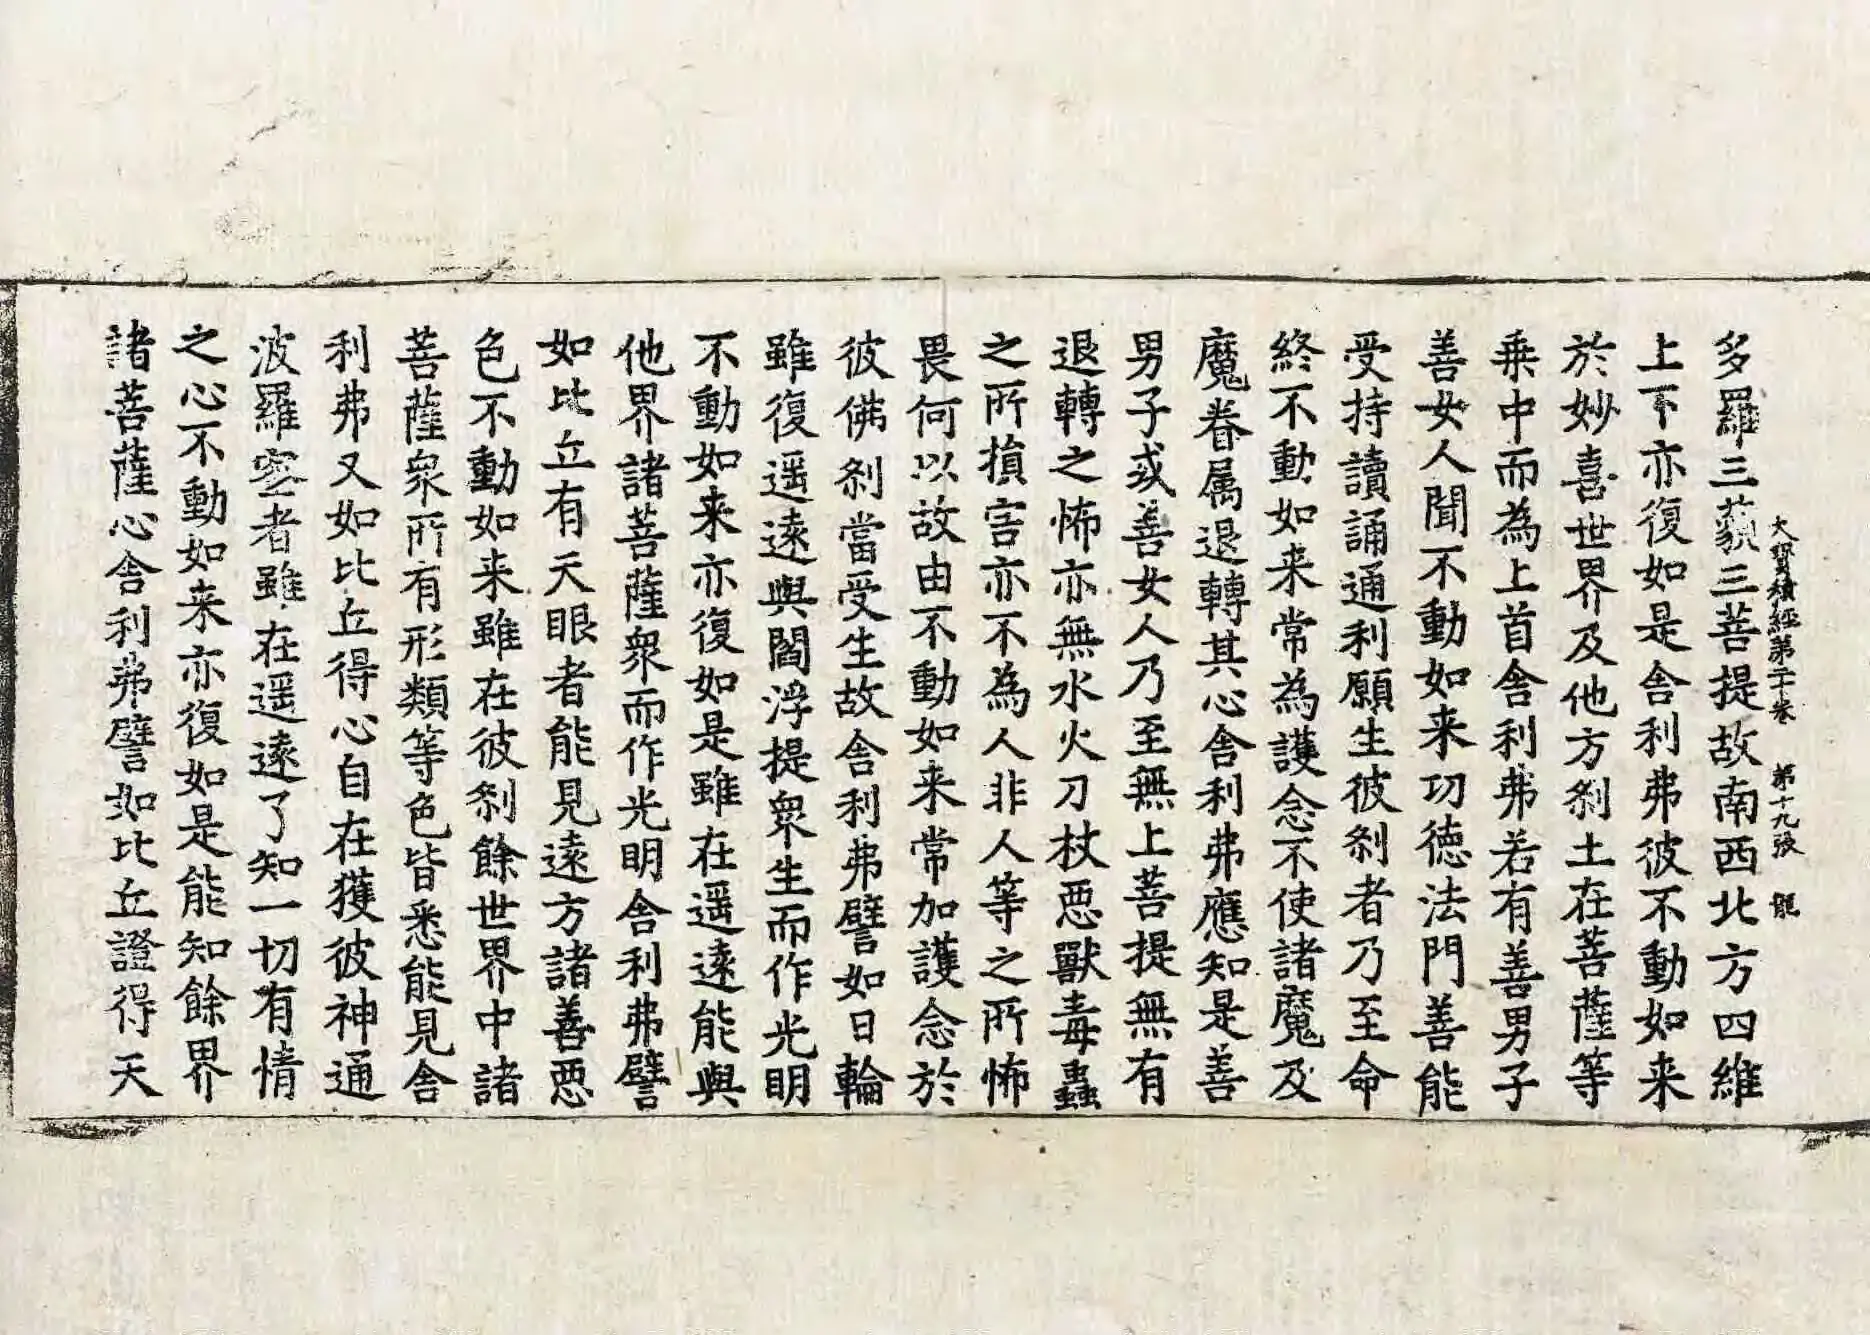 大寶積經第二十卷 第十九張 龍
多羅三藐三菩提故南西北方四維
上下亦復如是舍利弗彼不動如来
於妙喜世界及他方刹土在菩薩等
乗中而為上首舍利弗若有善男子
善女人聞不動如来功德法門善能
受持讀誦通利願生彼刹者乃至命
終不動如来常為護念不使諸魔及
魔眷属退轉其心舍利弗應知是善
男子或善女人乃至無上菩提無有
退轉之怖亦無水火刀杖惡獸毒蟲
之所損害亦不為人非人等之所怖
畏何以故由不動如来常加護念於
彼佛刹當受生故舍利弗譬如日輪
雖復遥遠與閻浮提衆生而作光明
不動如来亦復如是雖在遥遠能與
他界諸菩薩衆而作光明舍利弗譬
如比丘有天眼者能見遠方諸善惡
色不動如来雖在彼刹餘世界中諸
菩薩衆所有形類等色皆悉能見舍
利弗又如比丘得心自在獲彼神通
波羅密者雖在遥遠了知一切有情
之心不動如来亦復如是能知餘界
諸菩薩心舍利弗譬如比丘證得天